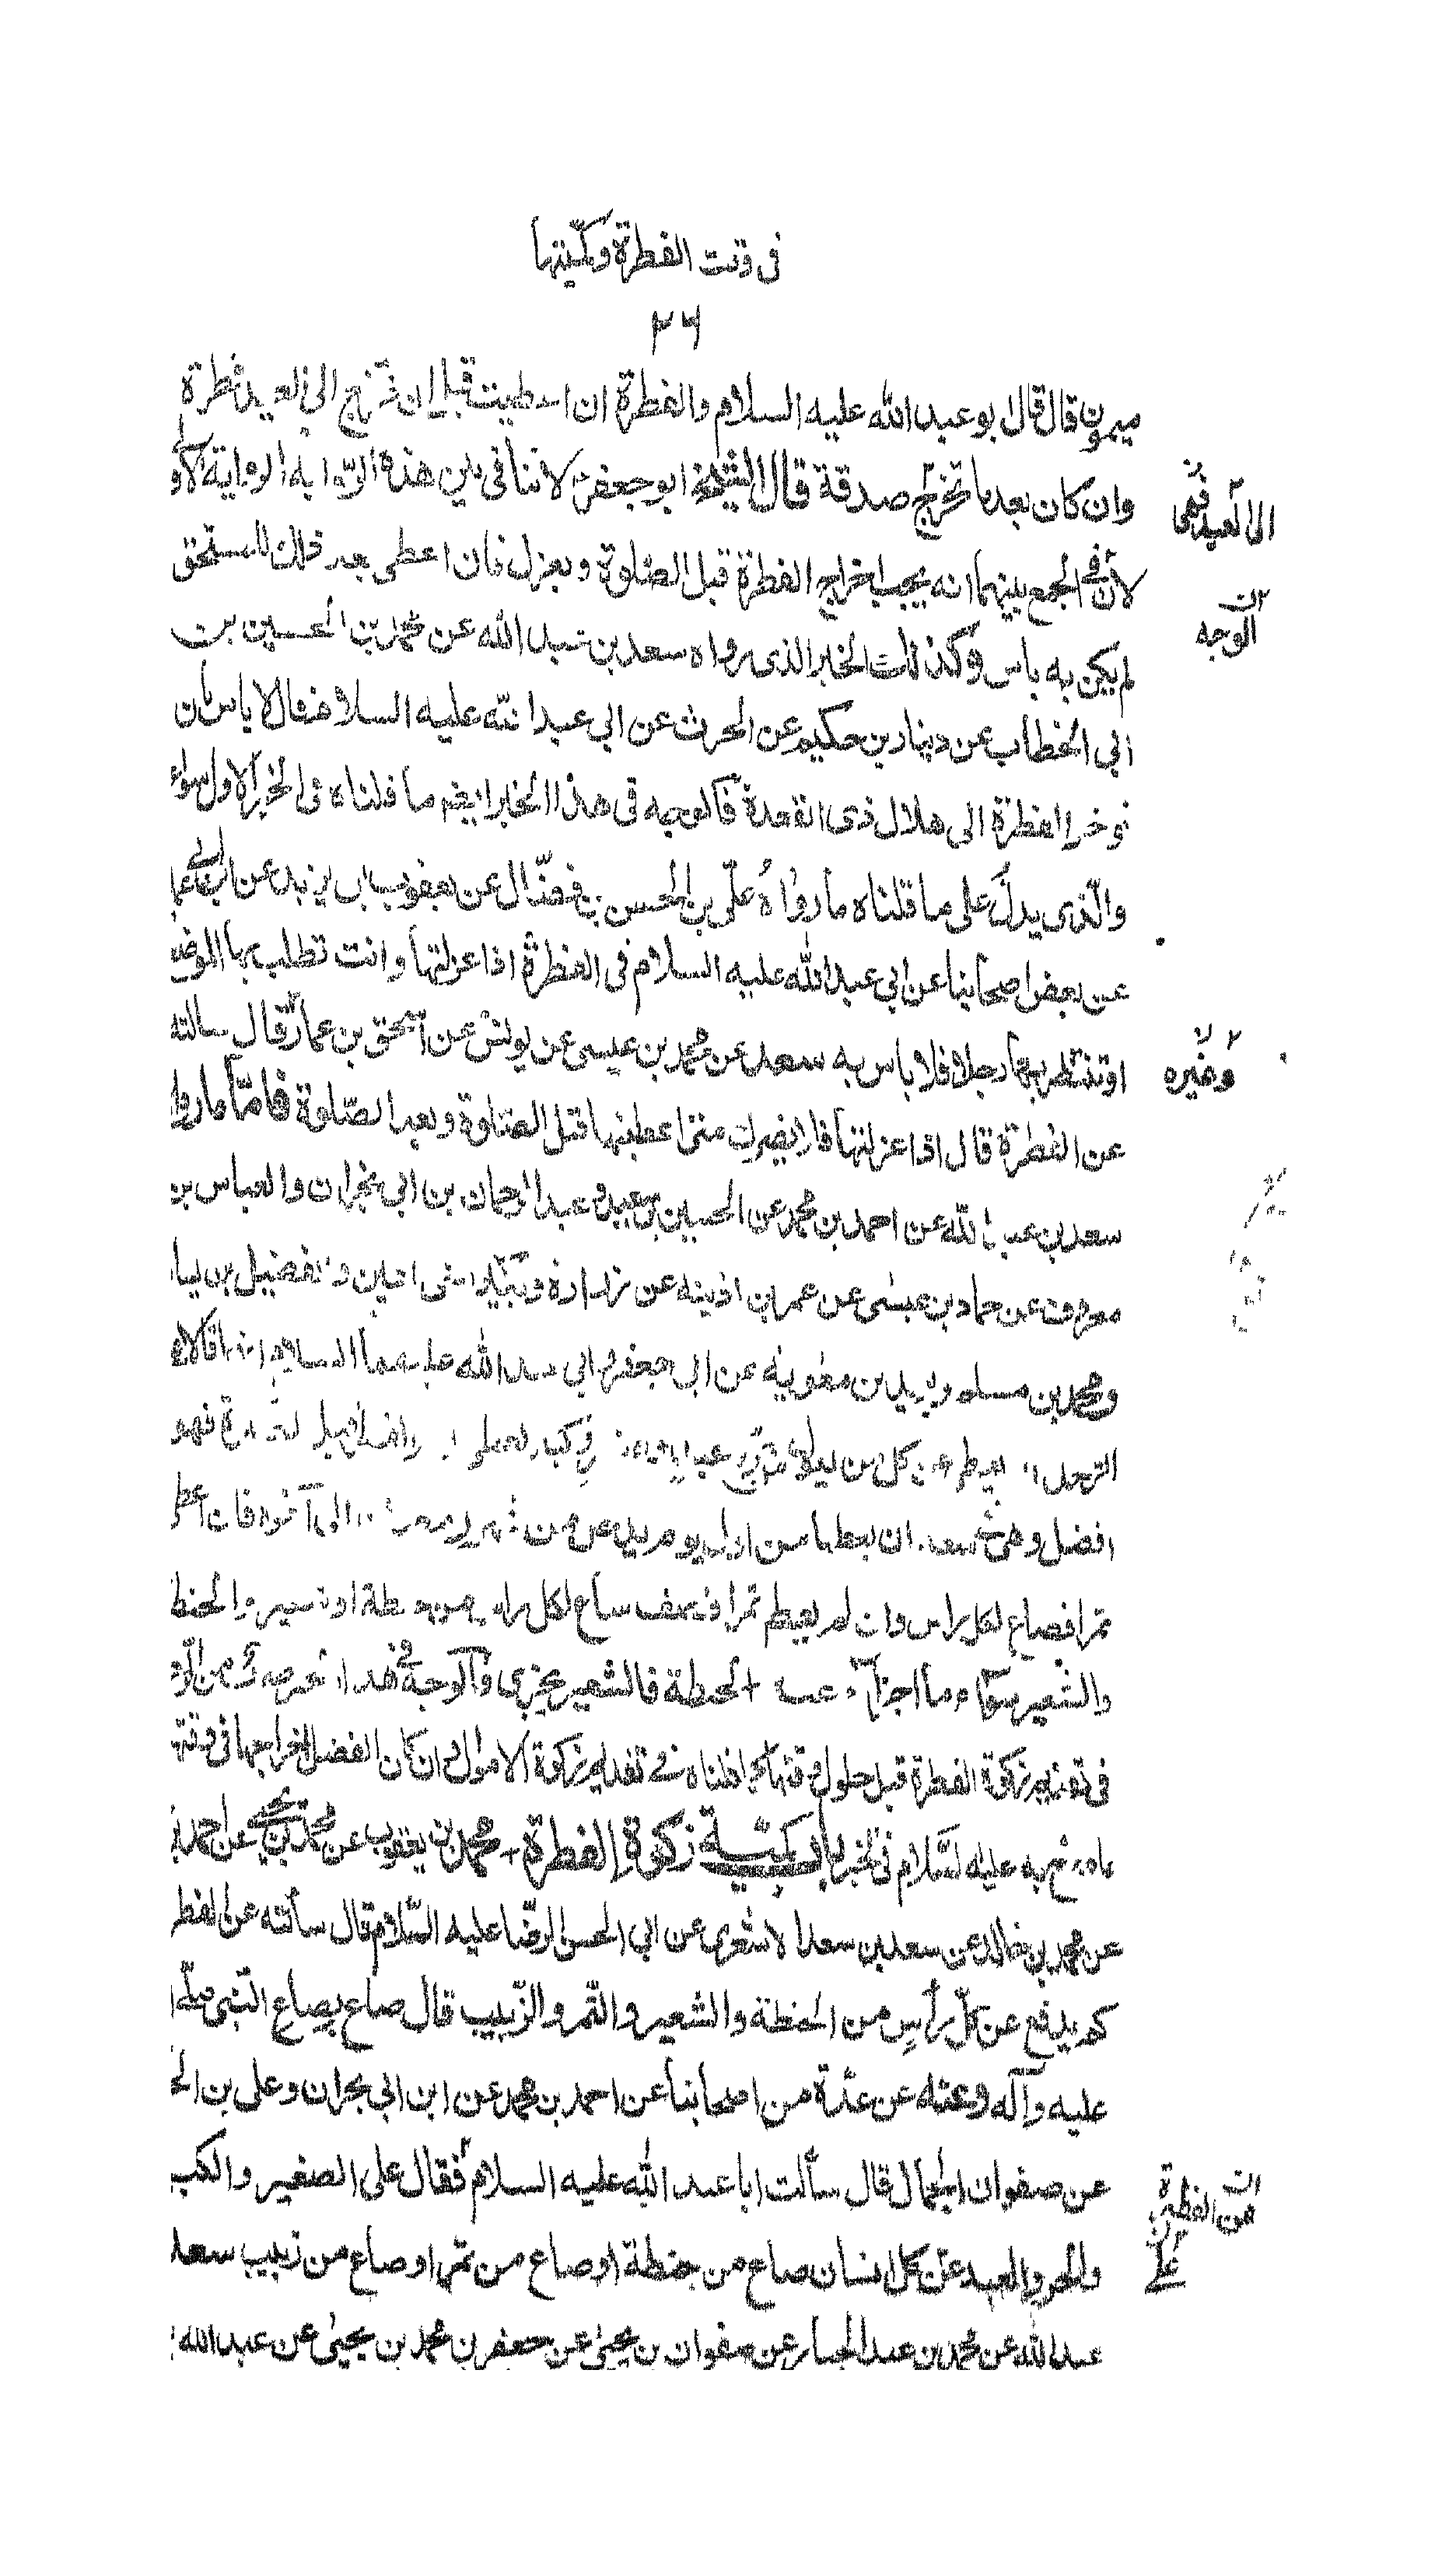 فى وقت الفطرة وكميتها
٢٦
ميمون قال قال ابو عبد الله عليه السلام والفطرة ان اعطيت قبل ان تخرج الى العيد فطرة
وان كان بعد ما تخرج صدقة قال الشيخ ابو جعفر لا تنافى بين هذه الرواية الاو
الى العيد فهى
لأن فى الجمع بينهما انه يجب اخراج الفطرة قبل الصلوة وبعزل فان اعطى بعد ذلك للمستحق
ان الوجه
لم يكن به باس وكذلك الخبر الذى رواه سعد بن عبد الله عن محمد بن الحسين بن
ابى الخطاب عن دينار بن حكيم عن الحرث عن ابى عبد الله عليه السلام قال لا باس بان
نوخر الفطرة الى هلال ذى القعدة فالوجه فى هذا الخبر ايضا ما قلناه فى الخبر الاول سواء
والّذى يدل على ما قلناه ما رواه علّى بن الحسن بن فضّال عن يعقوب بن يزيد عن ابن ابى عمير
عن بعض اصحابنا عن ابى عبد الله عليه السلام فى الفطرة اذا عزلتها وانت تطلب بها الموضع
او تنتظر بها رجلا فلا باس به سعد عن محمد بن عيسى عن يونس عن اسحق بن عمار قال سالته
وغيره
عن الفطرة قال اذا عزلتها فلا يضرك متى اعطيتها قبل الصلوة وبعد الصّلوة فامّا ما رواه
سعد بن عبد الله عن احمد بن محمد عن الحسين بن سعيد وعبد الرحمان بن ابى نجران والعباس بن
معروف عن حماد بن عيسى عن عمر بن اذينه عن زرارة وبكير ابنى اعين والفضيل بن يسا
ومحمد بن مسلم وبريد بن معوية عن ابى جعفر وابى عبد الله عليهما السلام انهما قالا
الرجل ان يعطى عن كل من يعول من حرّ وعبد فهو
افضل وهو فى سعة ان يعطيها من اول يوم يدخل من شهر رمضان الى آخره فان اعطى
تمرا فصاع لكل راس وان لم يعط تمرا فنصف صاع لكل راس من حنطة او شعير والحنط
والشعير سواء ما اجزأ عنه الحنطة فالشعير يجزى فالوجه فى هذا
فى تقديم زكوة الفطرة قبل حلول وقتها كما قلناه فى تقديم زكوة الاموال وان كان الفضل اخراجها فى وقتها
عليه السّلام فى الخبر باب كميّة زكوة الفطرة محمد بن يعقوب عن محمد بن يحيى عن احمد بن
عن محمد بن خالد عن سعد بن سعد الاشعرى عن ابى الحسن الرضا عليه السّلام قال سألته عن الفطر
كم يدفع عن كلّ رأس من الحنطة والشعير والتمر والزّبيب قال صاع بصاع النّبى صلّى ا
عليه وآله وعنه عن عدّة من اصحابنا عن احمد بن محمد عن ابن ابى نجران وعلى بن الح
عن صفوان الجمال قال سألت ابا عبد الله عليه السلام فقال على الصغير والكب
عن الفطرة
والحر والعبد عن كل انسان صاع من حنطة او صاع من تمر او صاع من زبيب سعد
على
عبد الله عن محمد بن عبد الجبار عن صفوان بن يحيى عن جعفر بن محمد بن يحيى عن عبد الله